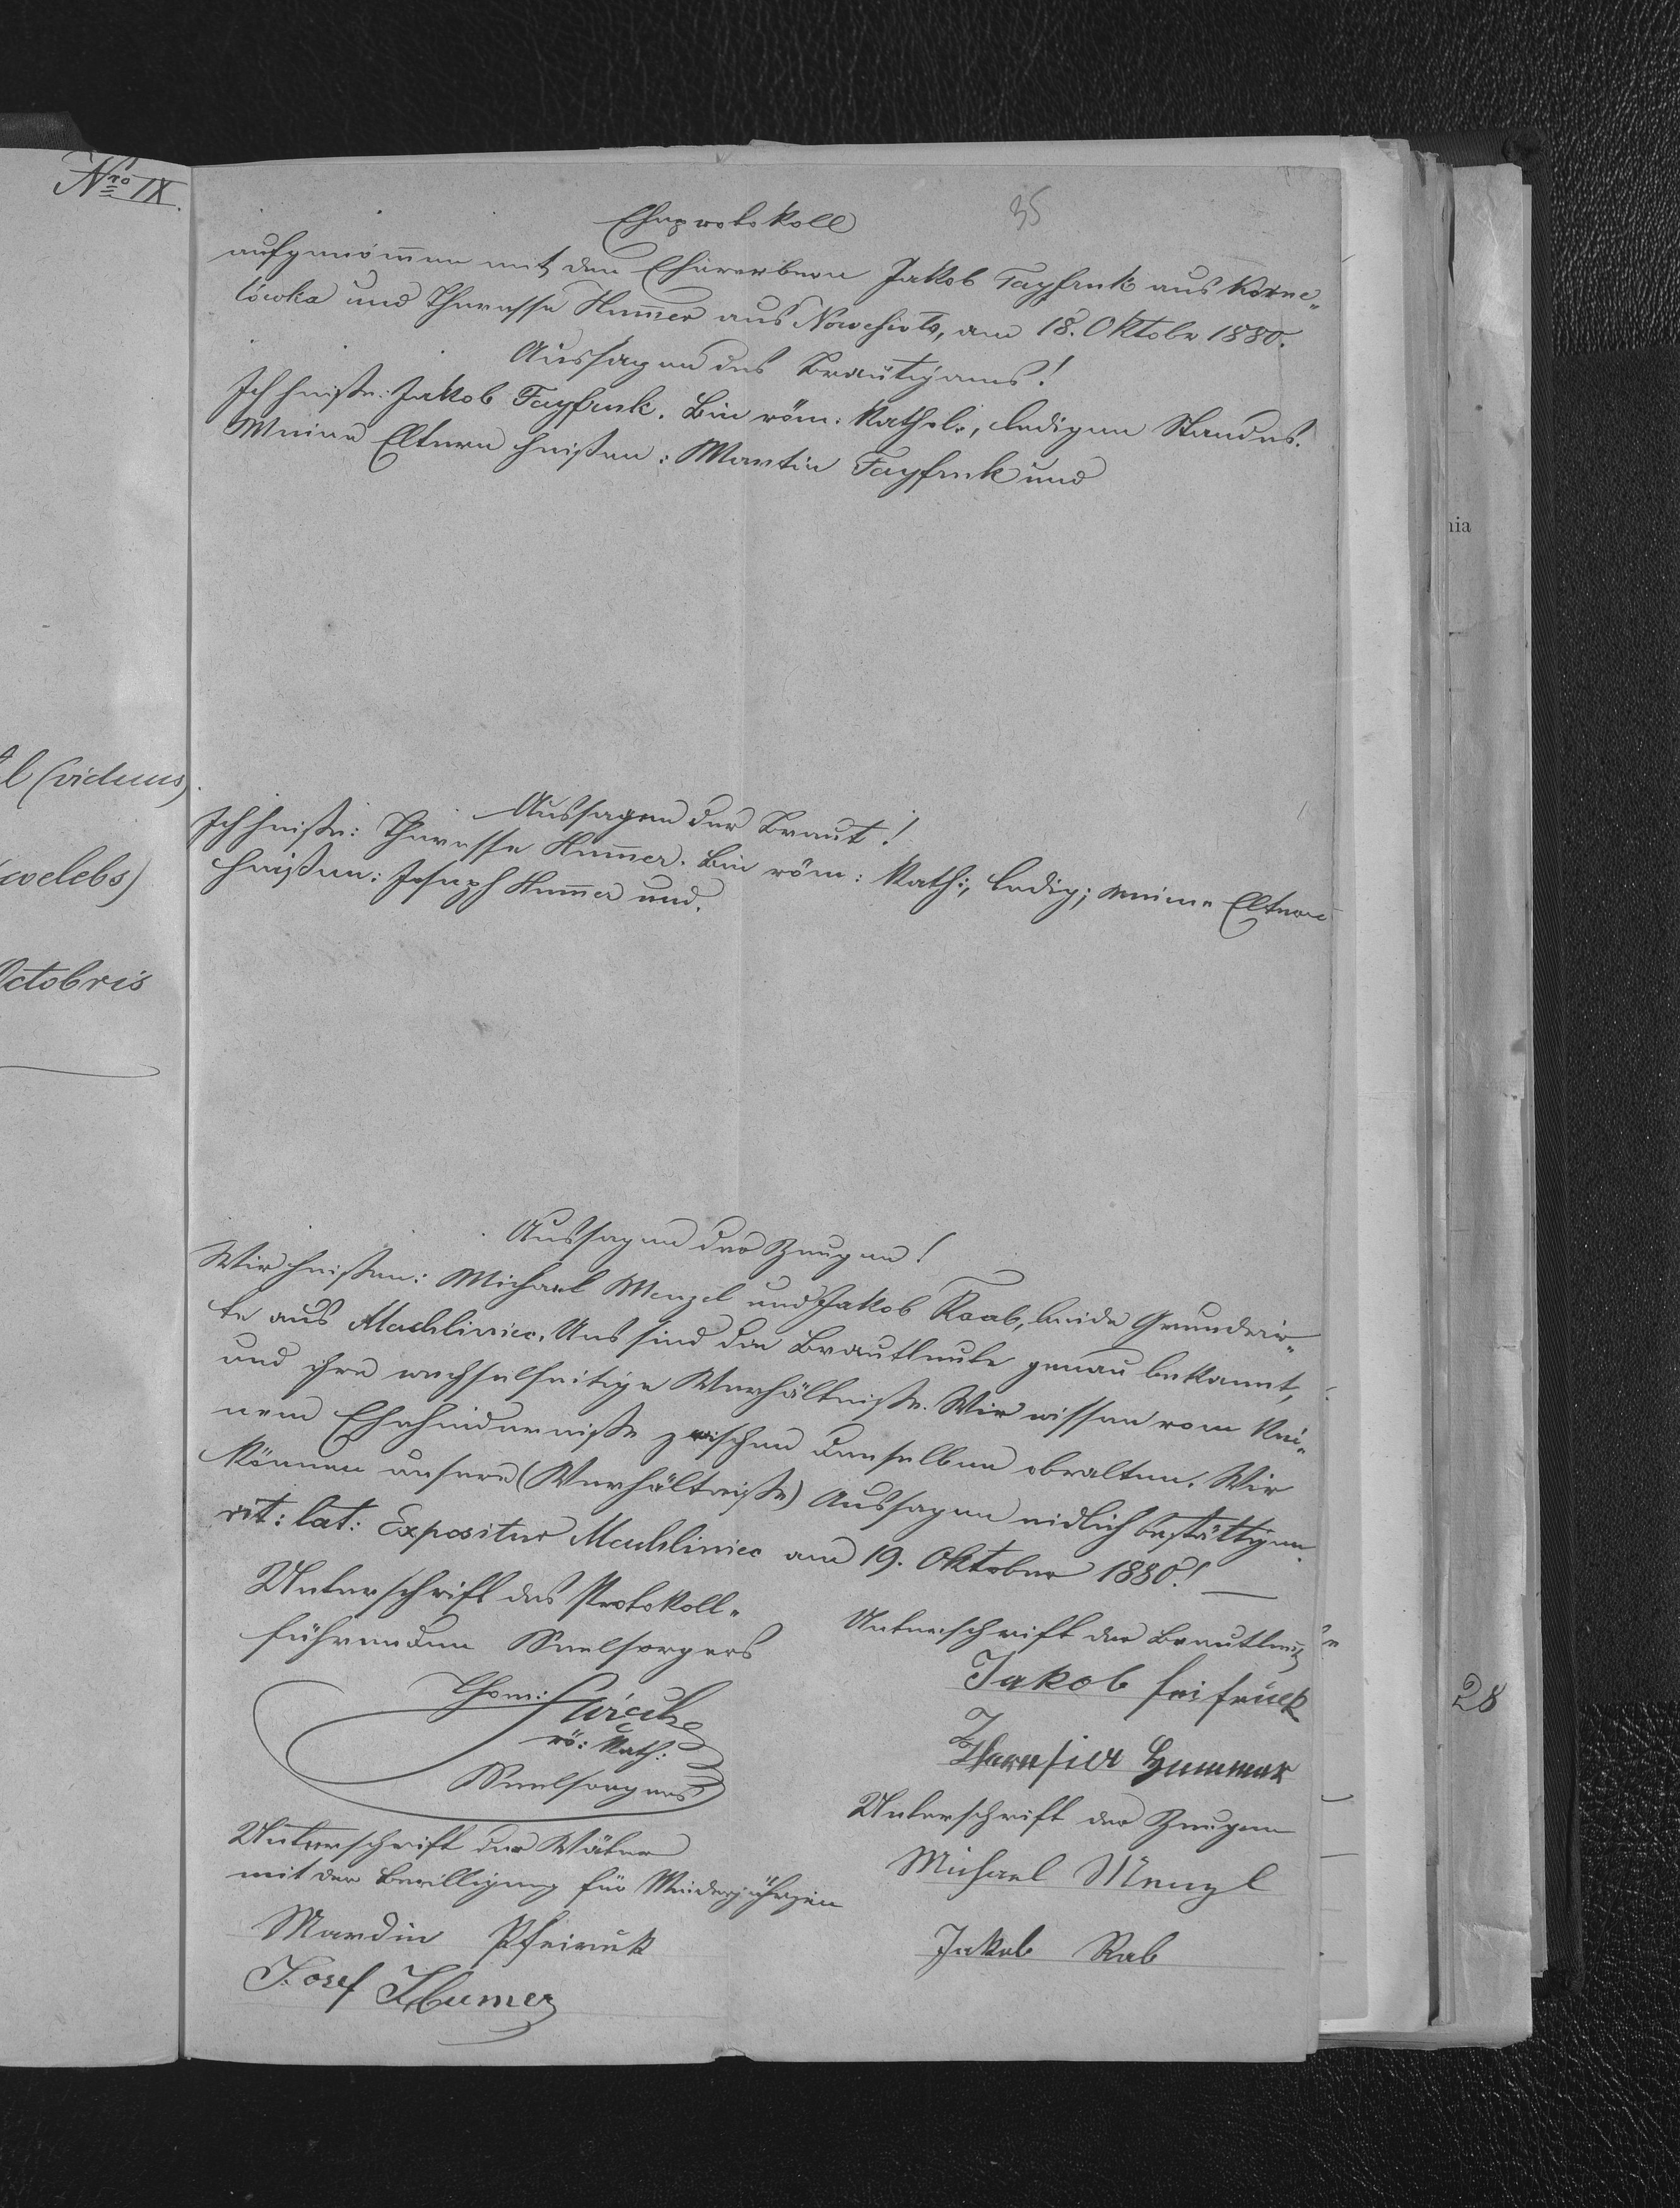 Nro IX.
35
Eheprotokoll
aufgenommen mit den Ehewerbern Jakob Fayfruk aus Korne„
lówka und Theresse Hum̅er aus Nowesioło, am 18. Oktobr 1880.
Aussagen des Bräutigams!
Ich heiße: Jakob Fayfruk. Bin röm: Kathol., ledigen Standes.
Meine Eltern heißen: Martin Fayfruk und
l (viduus).
Aussagen der Braut!
Ich heiße: Theresse Hum̅er. Bin röm: Kath:, ledig; meine Eltern
(coelebs)
heißen: Joseph Hum̅er und.
Octobris
Aussagen der Zeugen!
Wir heißen: Michael Menzel und Jakob Raab, beide Grundwir„
te aus Machliniec. Uns sind die Brautleute genau bekannt,
und ihre wechselseitige Verhältniße. Wir wissen vom kei„
nem Ehehinderniße zwischen denselben obwalten. Wir
können unsere (Verhältniße) Aussagen eidlich bestättigen.
rit: lat: Expositur Machliniec am 19. Oktober 1880! —
Unterschrift des Protokoll„
führenden Seelsorgers
Thom:
rö: Kath:
Seelsorger
Unterschrift der Brautleute
Jakob feifruck
Theresia Hummer
Unterschrift der Zeugen
Michael Menzl
Jakob Rab
Unterschrift der Väter
mit der Bewilligung für Minderjährigen
Mardin Pfeiruk
Josef Humer
nia
28